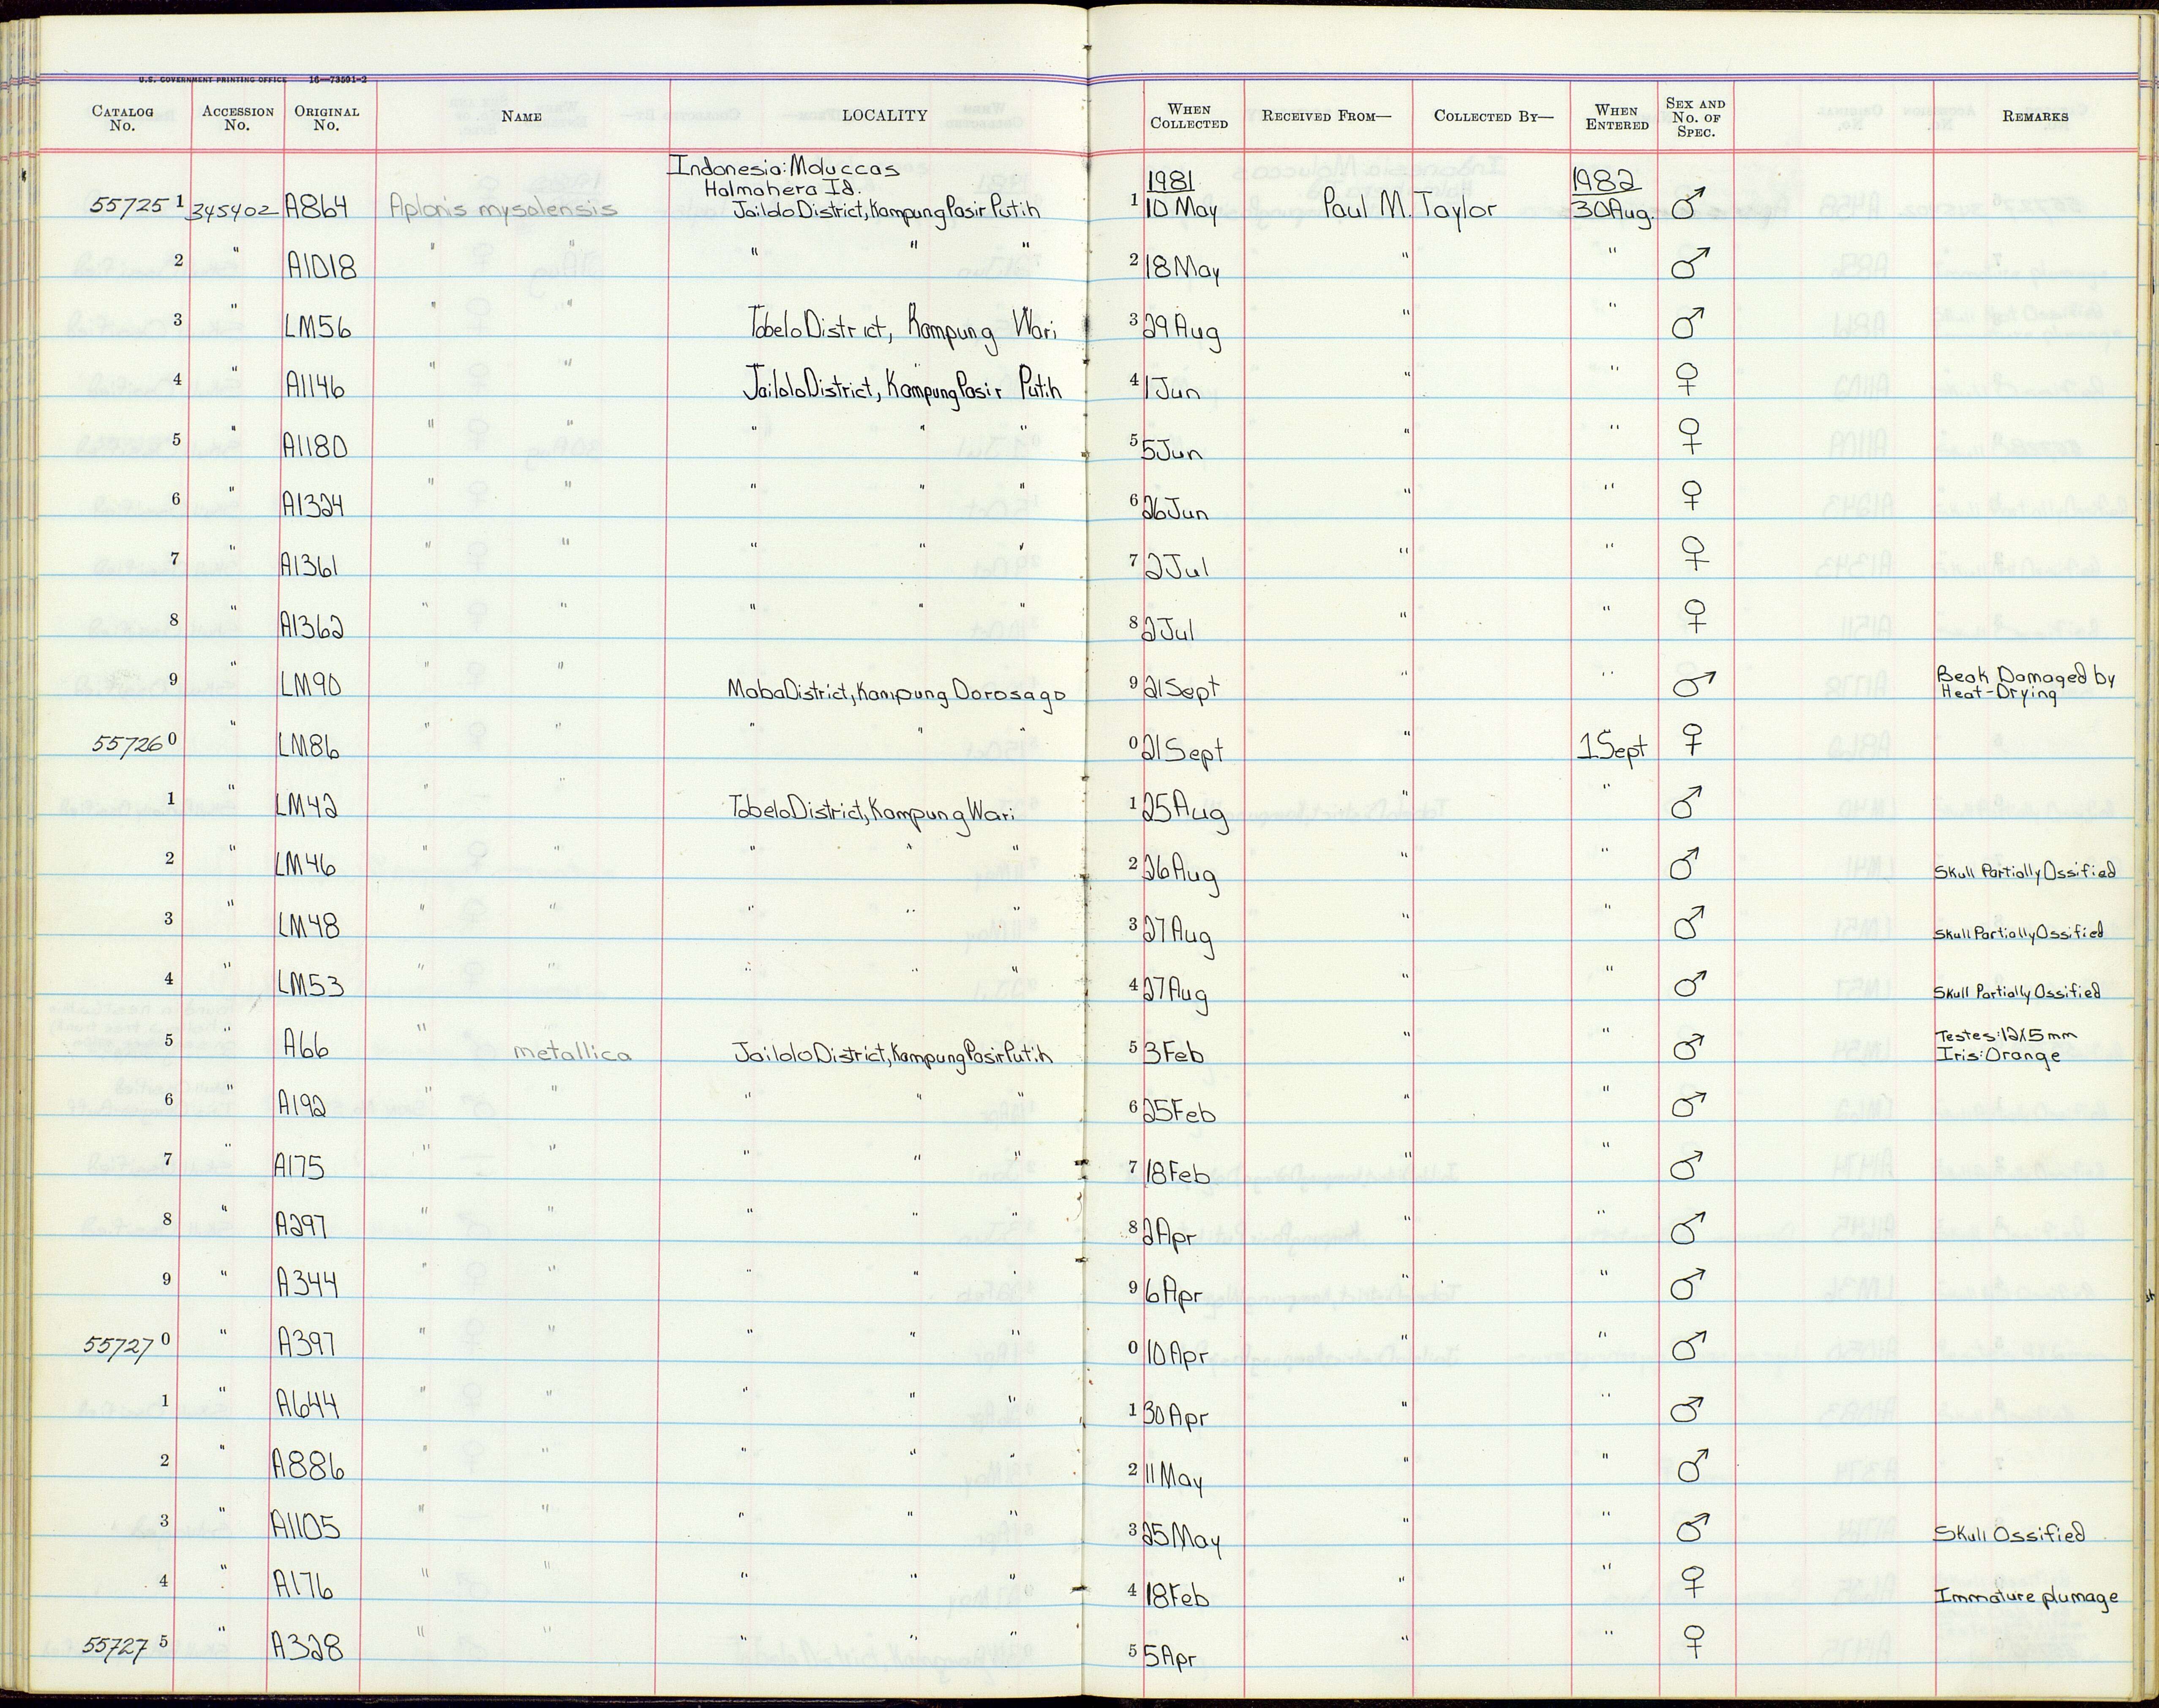 U.S. GOVERNMENT PRINTING OFFICE 16—73501-2
CATALOG No. ACCESSION No. ORIGINAL No. NAME LOCALITY WHEN COLLECTED RECEIVED FROM— COLLECTED BY— WHEN ENTERED SEX AND No. OF SPEC. REMARKS
Indonesia: Moluccas
Halmahera Id. 1981 1982
557251 345402 A864 Aplonis mysolensis Jailolo District, Kampung Pasir Putih 1 10 May Paul M. Taylor 30 Aug. ♂
2 " A1018 " " " " " 2 18 May " " ♂
3 " LM56 " " Tobelo District, Kampung Wari 3 29 Aug " " ♂
4 " A1146 " " Jailolo District, Kampung Pasir Putih 4 1 Jun " " ♀
5 " A1180 " " " " " 5 5 Jun " " ♀
6 " A1324 " " " " " 6 26 Jun " " ♀
7 " A1361 " " " " " 7 2 Jul " " ♀
8 " A1362 " " " " " 8 2 Jul " " ♀
9 " LM90 " " Maba District, Kampung Dorosago 9 21 Sept " " ♂ Beak Damaged by
Heat-Drying
557260 " LM86 " " " " " 0 21 Sept " 1 Sept ♀
1 " LM42 " " Tobelo District, Kampung Wari 1 25 Aug " " ♂
2 " LM46 " " " " " 2 26 Aug " " ♂ Skull Partially Ossified
3 " LM48 " " " " " 3 27 Aug " " ♂ Skull Partially Ossified
4 " LM53 " " " " " 4 27 Aug " " ♂ Skull Partially Ossified
5 " A66 " metallica Jailolo District, Kampung Pasir Putih 5 3 Feb " " ♂ Testes: 12x5 mm
Iris: Orange
6 " A192 " " " " " 6 25 Feb " " ♂
7 " A175 " " " " " 7 18 Feb " ♂
8 " A297 " " " " " 8 2 Apr " " ♂
9 " A344 " " " " " 9 6 Apr " " ♂
557270 " A397 " " " " " 0 10 Apr " " ♂
1 " A644 " " " " " 1 30 Apr " " ♂
2 " A886 " " " " " 2 11 May " " ♂
3 " A1105 " " " " " 3 25 May " " ♂ Skull Ossified
4 " A176 " " " " " 4 18 Feb " " ♀ Immature plumage
557275 " A328 " " " " " 5 5 Apr " " ♀